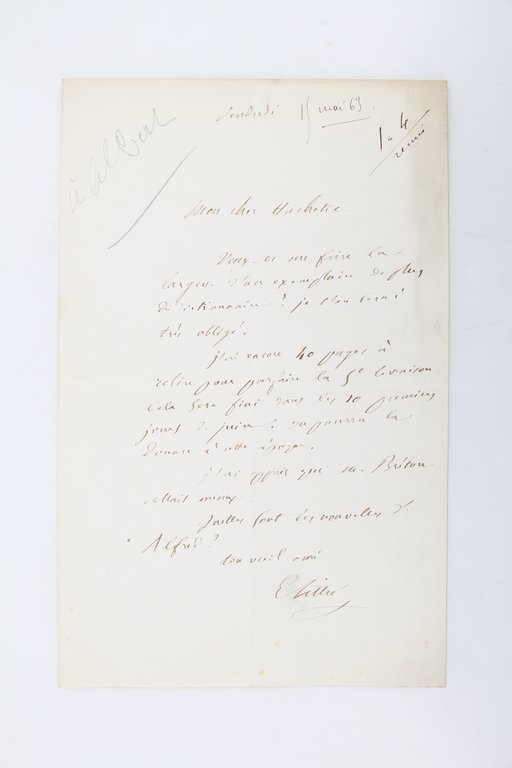 Vendredi 15 mai 63
1 ex 4
remis
à Albert
Mon cher Hachette
Veux-tu me faire la
largesse d'un exemplaire de plus
du dictionnaire ? je t'en serai
très obligé.
j'ai encore 40 pages à
relire pour parfaire la 5e livraison.
Cela sera fini dans les 10 premiers
jours de juin ; on pourra la
donner à cette époque.
j'ai appris que M. Bréton
allait mieux.
Quelles sont les nouvelles d'
Alfred ?
ton vieil ami
E Littré